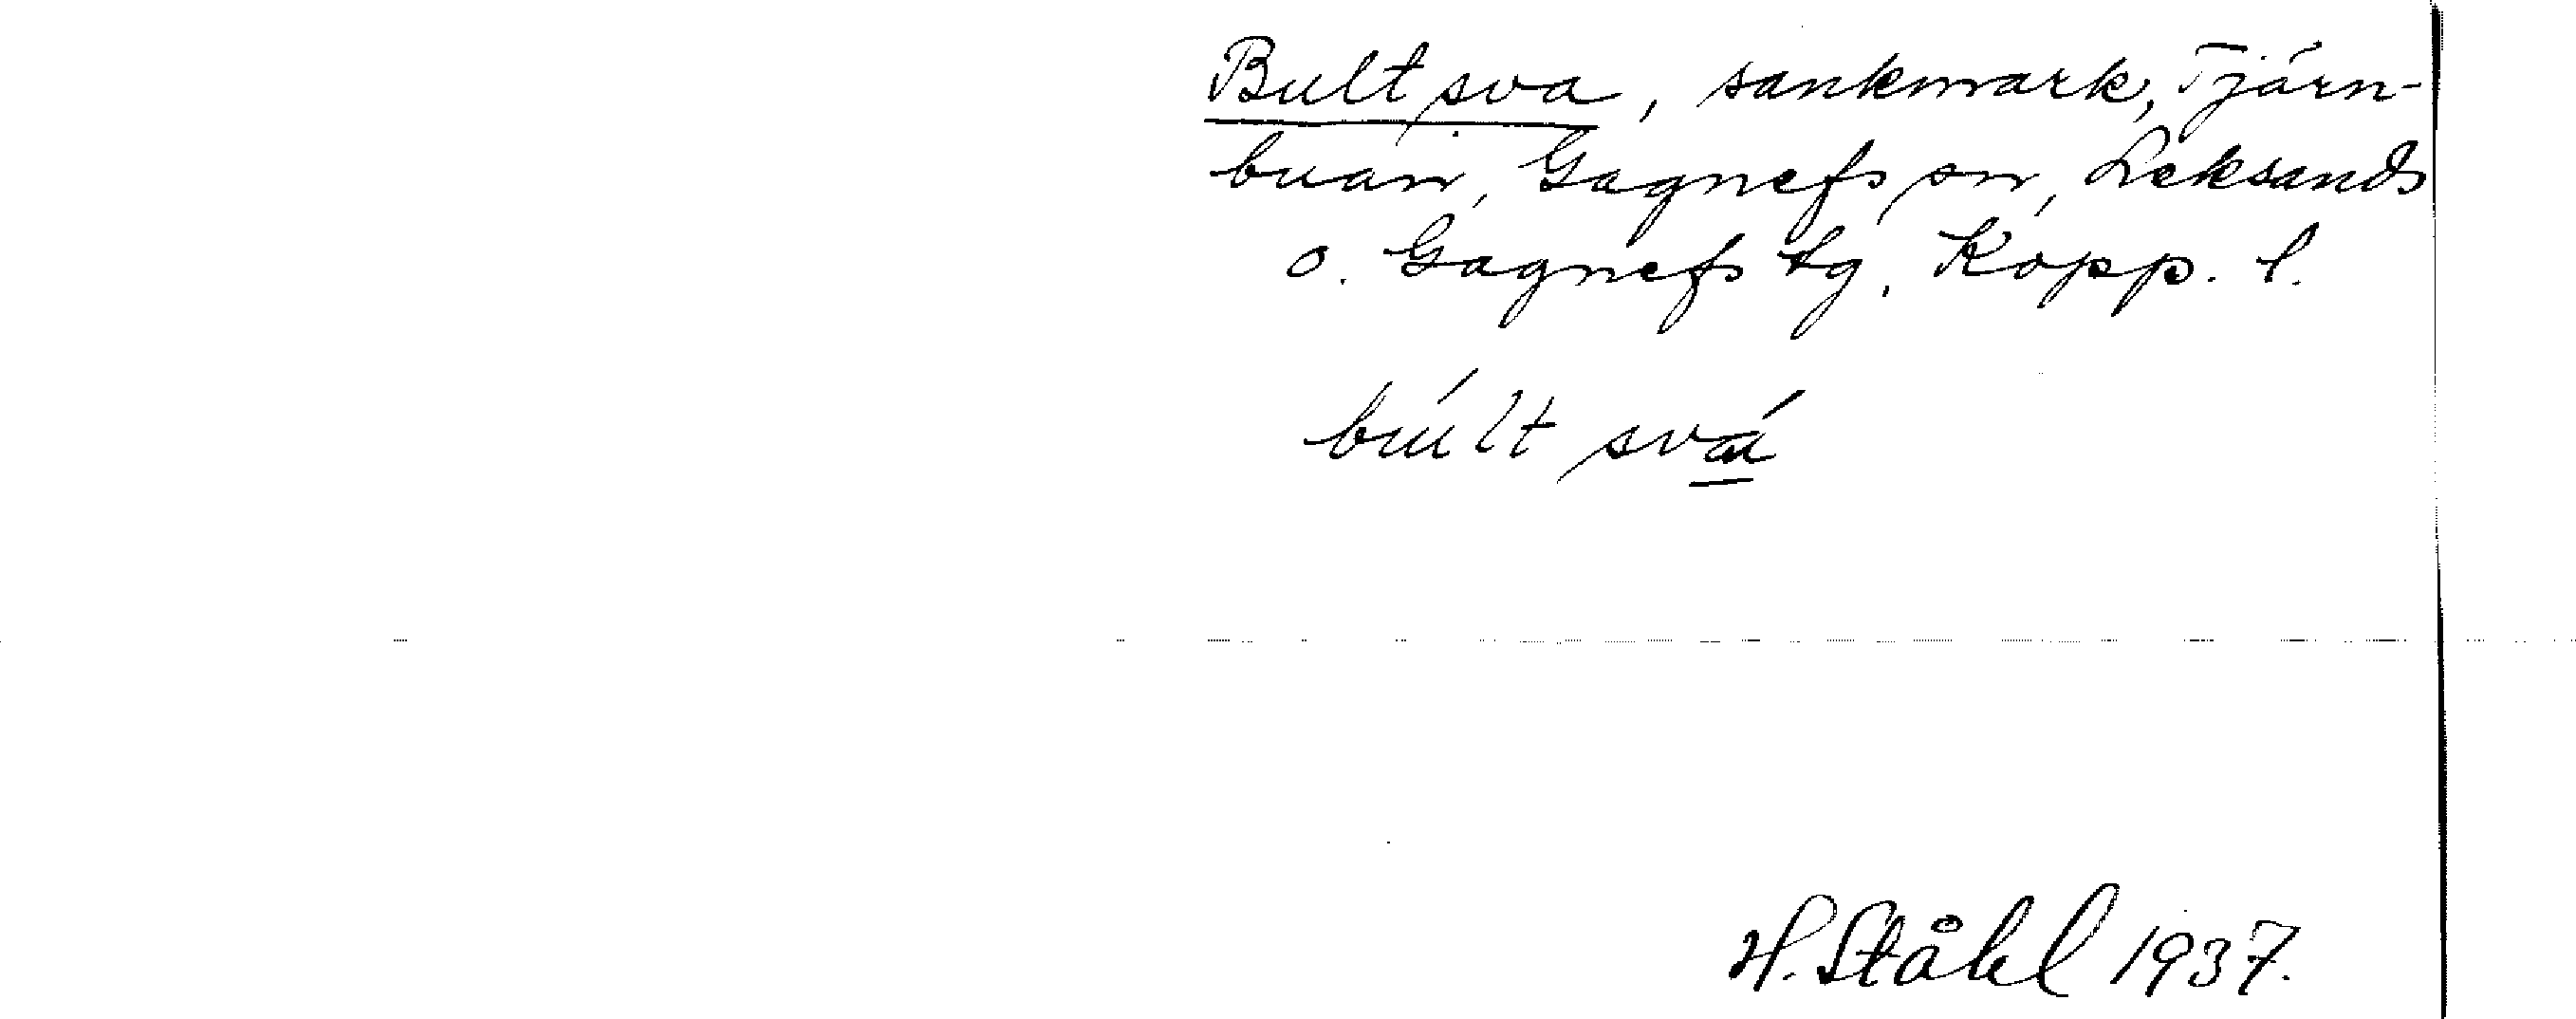 Bultsva, sankmark, Tjärn-
buan, Gagnefs sn, Leksands
o. Gagnefs tg, Kopp. l.
búlt svá
H. Ståhl 1937.